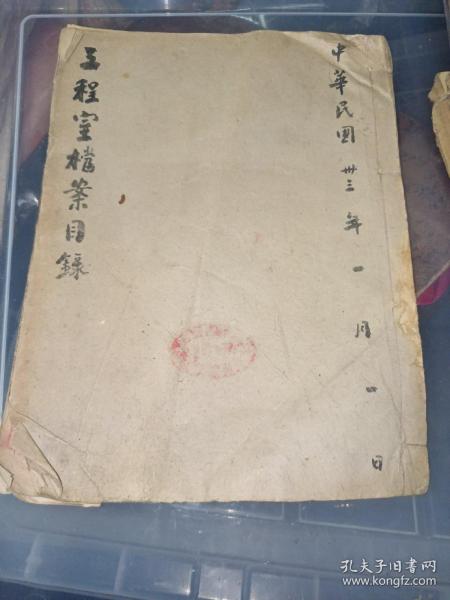 中華民國卅三年一月四日
工程室檔案目錄
孔夫子旧书网
www.kongfz.com